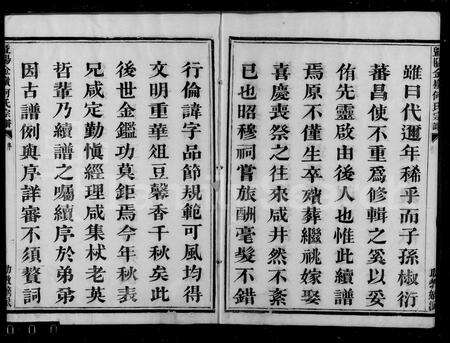 雖曰代邇年稀乎而子孫椒衍
蕃昌使不重爲修輯之奚以妥
侑先靈啟由後人也惟此續譜
焉原不僅生卒殯葬繼祧嫁娶
喜慶喪祭之往來咸井然不紊
已也昭穆祠嘗旅酬毫髮不錯
行倫諱字品節規範可風均得
文明重華俎豆馨香千秋矣此
後世金鑑功莫鉅焉今年秋表
兄咸定勤愼經理咸集杖老英
哲輩乃續譜之囑續序於弟弟
因古譜例與序詳審不須贅詞